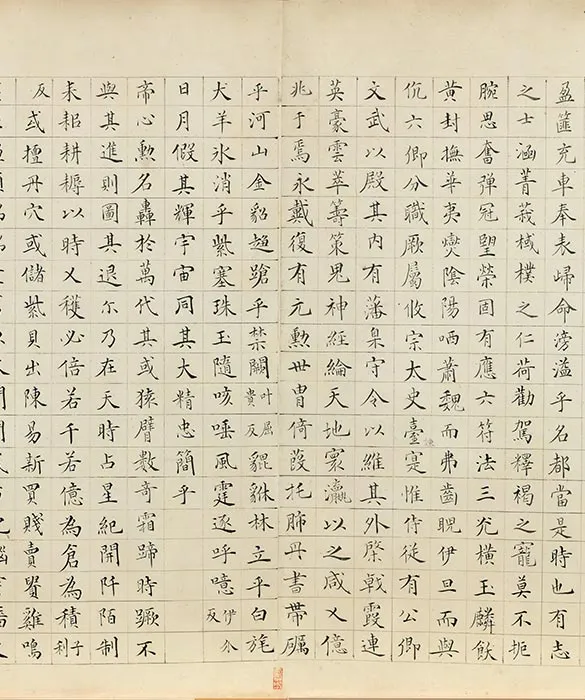 盈篚充車奉表歸命滂溢乎名都當是時也有志
之士涵菁莪棫樸之仁荷勸駕釋褐之寵莫不扼
腕思奮彈冠望榮固有應六符法三光橫玉麟飲
黃封撫華夷燮陰陽哂蕭魏而弗齒睨伊旦而與
伉六卿分職厥屬攸宗太史臺寔惟侍從有公卿
文武以殿其內有藩臬守令以維其外棨戟霞連
英豪雲萃籌策鬼神經綸天地寰瀛以之咸乂億
兆于焉永戴復有元勳世胄倚葭托肺丹書帶礪
乎河山金貂趨蹌乎禁闥叶屈貴反貔貅林立乎白旄
犬羊氷消乎紫塞珠玉隨咳唾風霆逐呼噫伊介反
日月假其輝宇宙同其大精忠簡乎
帝心勲名轟於萬代其或猿臂數奇霜蹄時蹶不
與其進則圖其退尓乃在天時占星紀開阡陌制
耒耜耕耨以時乂穫必倍若千若億為倉為積子利
反或擅丹穴或儲紫貝出陳易新買賤賣貴雞鳴